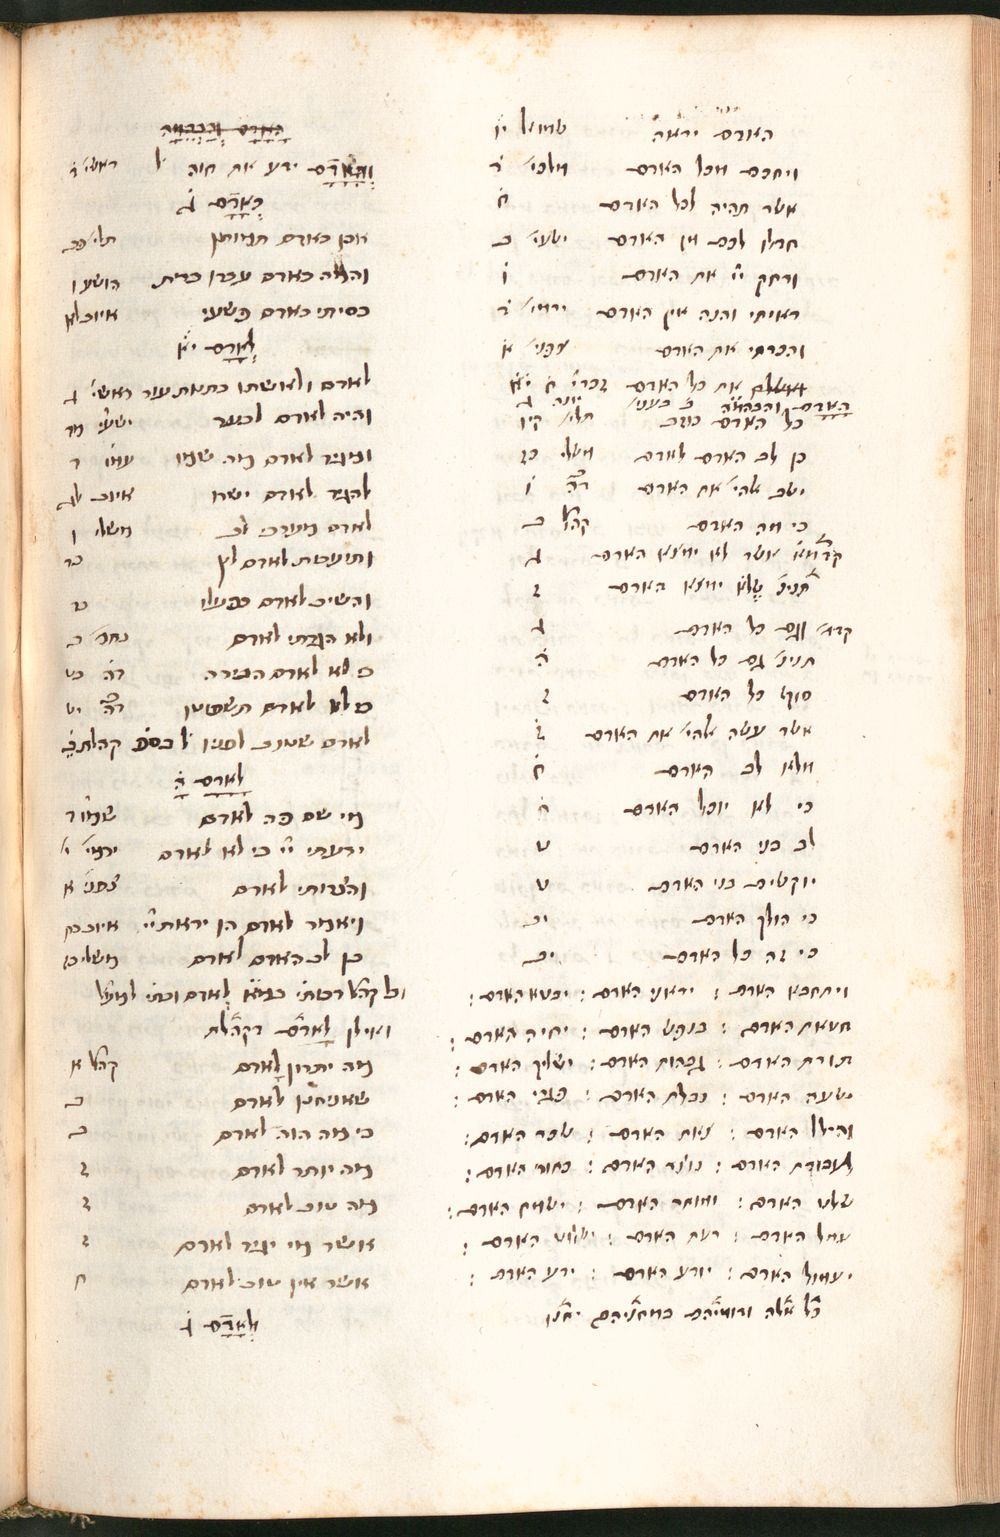 האדם יראה שמואל יו
ויחכם מכל האדם מלכי׳ ד
אשר תהיה לכל האדם ח
חדלו לכם מן האדם ישעי׳ ב
ורחק יי את האדם ו
ראיתי והנה אין האדם ירמי׳ ד
והכרתי את האדם צפני׳ א
את כל האדם זכרי׳ ח
האדם והבהמה יונה ג
כל האדם כוזב תלי׳ קיו
כן לב האדם לאדם משלי כז
ישב אלהי׳ את האדם ו
כי מה האדם קהל ב
אשר לא ימצא האדם ג
תניי׳ שלא ימצא האדם ז
קדמ׳ וגם כל האדם ג
תניי׳ גם כל האדם ה
סוף כל האדם ז
אשר עשה אלהי׳ את האדם ז
מלא לב האדם ח
כי לא יוכל האדם ח
לב בני האדם ט
יוקשים בני האדם ט
כי הולך האדם יב
כי זה כל האדם יב
ויתחבא האדם : יראני האדם : יבטא האדם :
חטאת האדם : בנפש האדם : יחיה האדם :
תורת האדם : גבהות האדם : ישליך האדם :
ישעה האדם : נבלת האדם : פגרי האדם :
והילל האדם : צאת האדם : שכר האדם :
לעבודת האדם : נוצר האדם : בחור האדם :
שלט האדם : ומותר האדם : ישמח האדם :
עמל האדם : רעת האדם : ישלוט האדם :
יעמול האדם : יודע האדם : ידע האדם :
כל אלה ודומיהם במחניהם יחנו
האדם ובבהמה
והאדם ידע את חוה ל ראשי׳ ד
כאדם ג
אכן כאדם תמותון תלי׳ פב
והמה כאדם עברו ברית הושע ו
כסיתי כאדם פשעי איוב לא
לאדם יא
לאדם ולאשתו כתנות עור ראשי׳ ג
והיה לאדם לבער ישעי׳ מד
ומגיד לאדם מה שחו עמו׳ ד
להגיד לאדם ישרו איוב לג
לאדם מערכי לב משלי יו
ותועבת לאדם לץ כד
והשיב לאדם כפעלו כד
ולא הגדתי לאדם נחמי׳ ב
כי לא לאדם הבירה דה כט
כי לא לאדם תשפטו יט
לאדם שטוב לפניו קהלת ב
לאדם ה
מי שם פה לאדם שמו׳ ד
ידעתי יי כי לא לאדם ירמי׳ י
והצרותי לאדם צפני׳ א
ויאמר לאדם הן יראת יי איוב כח
כן לב האדם לאדם משלי כז
ואילין לאדם דקהלת
מה יתרון לאדם קהל א
שאניחנו לאדם ב
כי מה הוה לאדם ב
מה יותר לאדם ז
מה טוב לאדם ז
אשר מי יגיד לאדם ז
אשר אין טוב לאדם ח
ולאדם ג